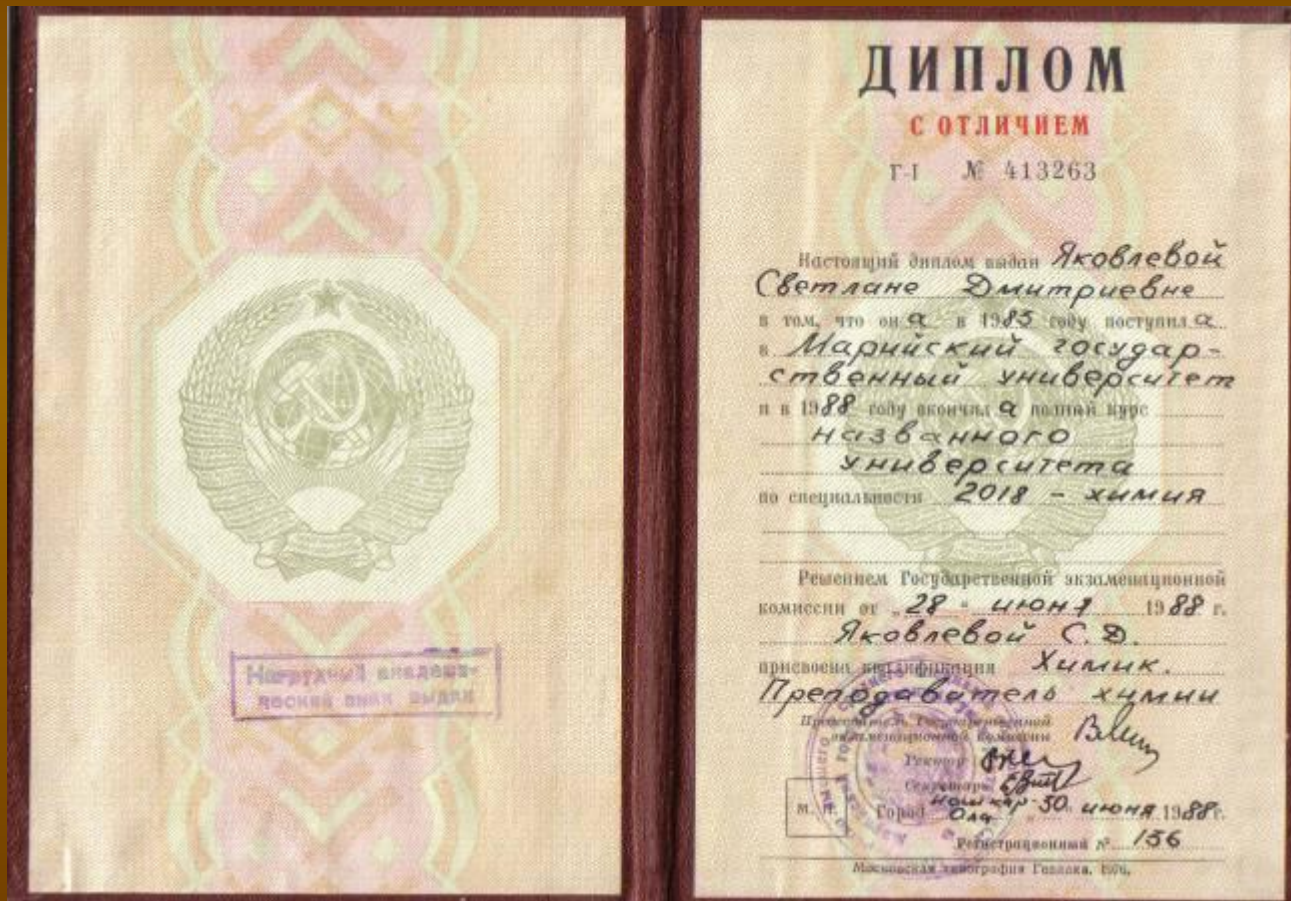 Нагрудный академи-
ческий знак выдан
ДИПЛОМ
С ОТЛИЧИЕМ
Г-I № 413263
Настоящий диплом выдан Яковлевой
Светлане Дмитриевне
в том, что он а в 1985 году поступил а
в Марийский государ-
ственный университет
и в 1988 году окончил а полный курс
названного
университета
по специальности 2018 - химия
Решением Государственной экзаменационной
комиссии от „28“ июня 1988 г.
Яковлевой С.Д.
присвоена квалификация Химик.
Преподаватель химии
Председатель Государственной
экзаменационной комиссии
Ректор
Секретарь
М. П. Город Йошкар-Ола „30“ июня 1988 г.
Регистрационный № 156
Московская типография Гознака. 1976.